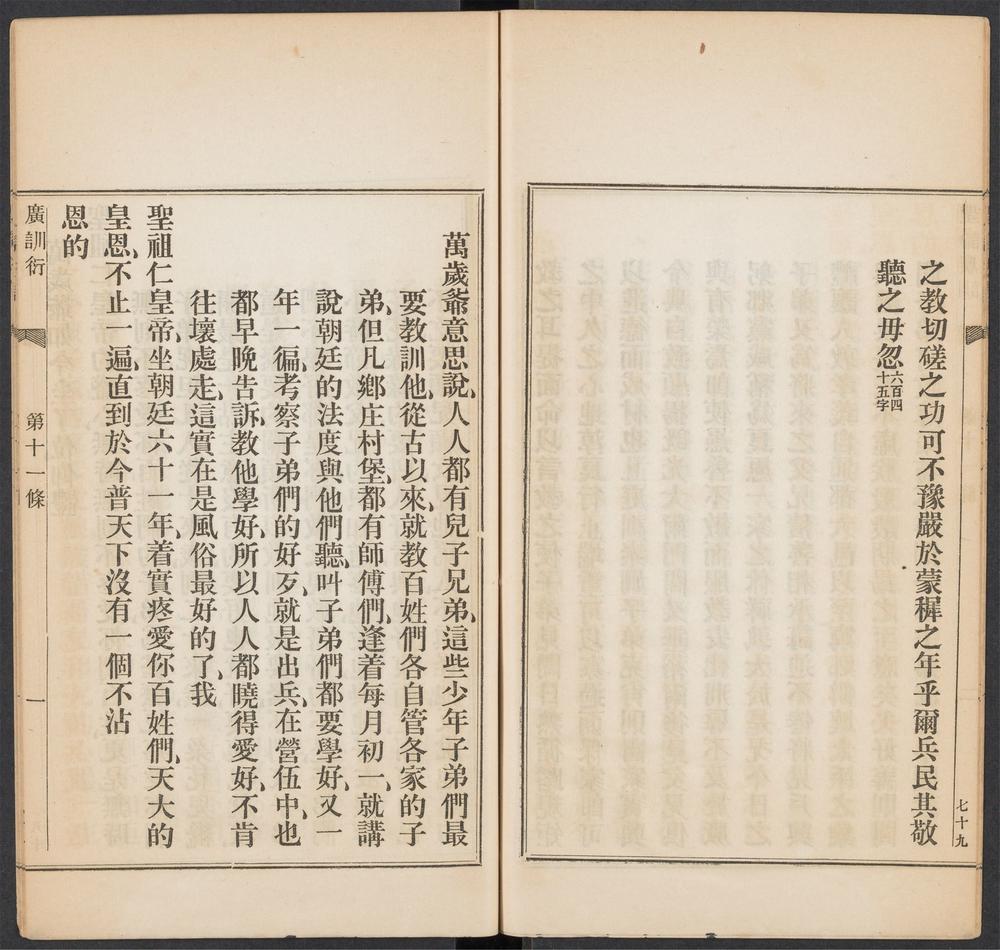 之教切磋之功可不豫嚴於蒙穉之年乎爾兵民其敬
聽之毋忽六百四十五字
七十九
萬歲爺意思說、人人都有兒子兄弟、這些少年子弟們最
要教訓他、從古以來、就教百姓們各自管各家的子
弟、但凡鄉庄村堡、都有師傅們、逢着每月初一、就講
說朝廷的法度與他們聽、叫子弟們都要學好、又一
年一徧、考察子弟們的好歹、就是出兵、在營伍中、也
都早晚告訴、教他學好、所以人人都曉得愛好、不肯
往壞處走、這實在是風俗最好的了、我
聖祖仁皇帝、坐朝廷六十一年、着實疼愛你百姓們、天大的
皇恩、不止一遍、直到於今普天下沒有一個不沾
恩的
廣訓衍 第十一條 一